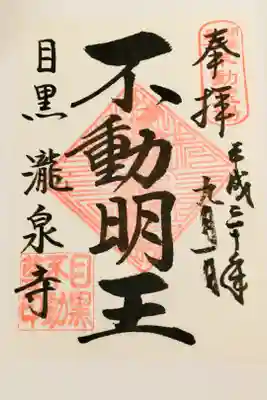 奉拝
平成三十年
九月一日
不動明王
目黒 瀧泉寺
目黒
不動